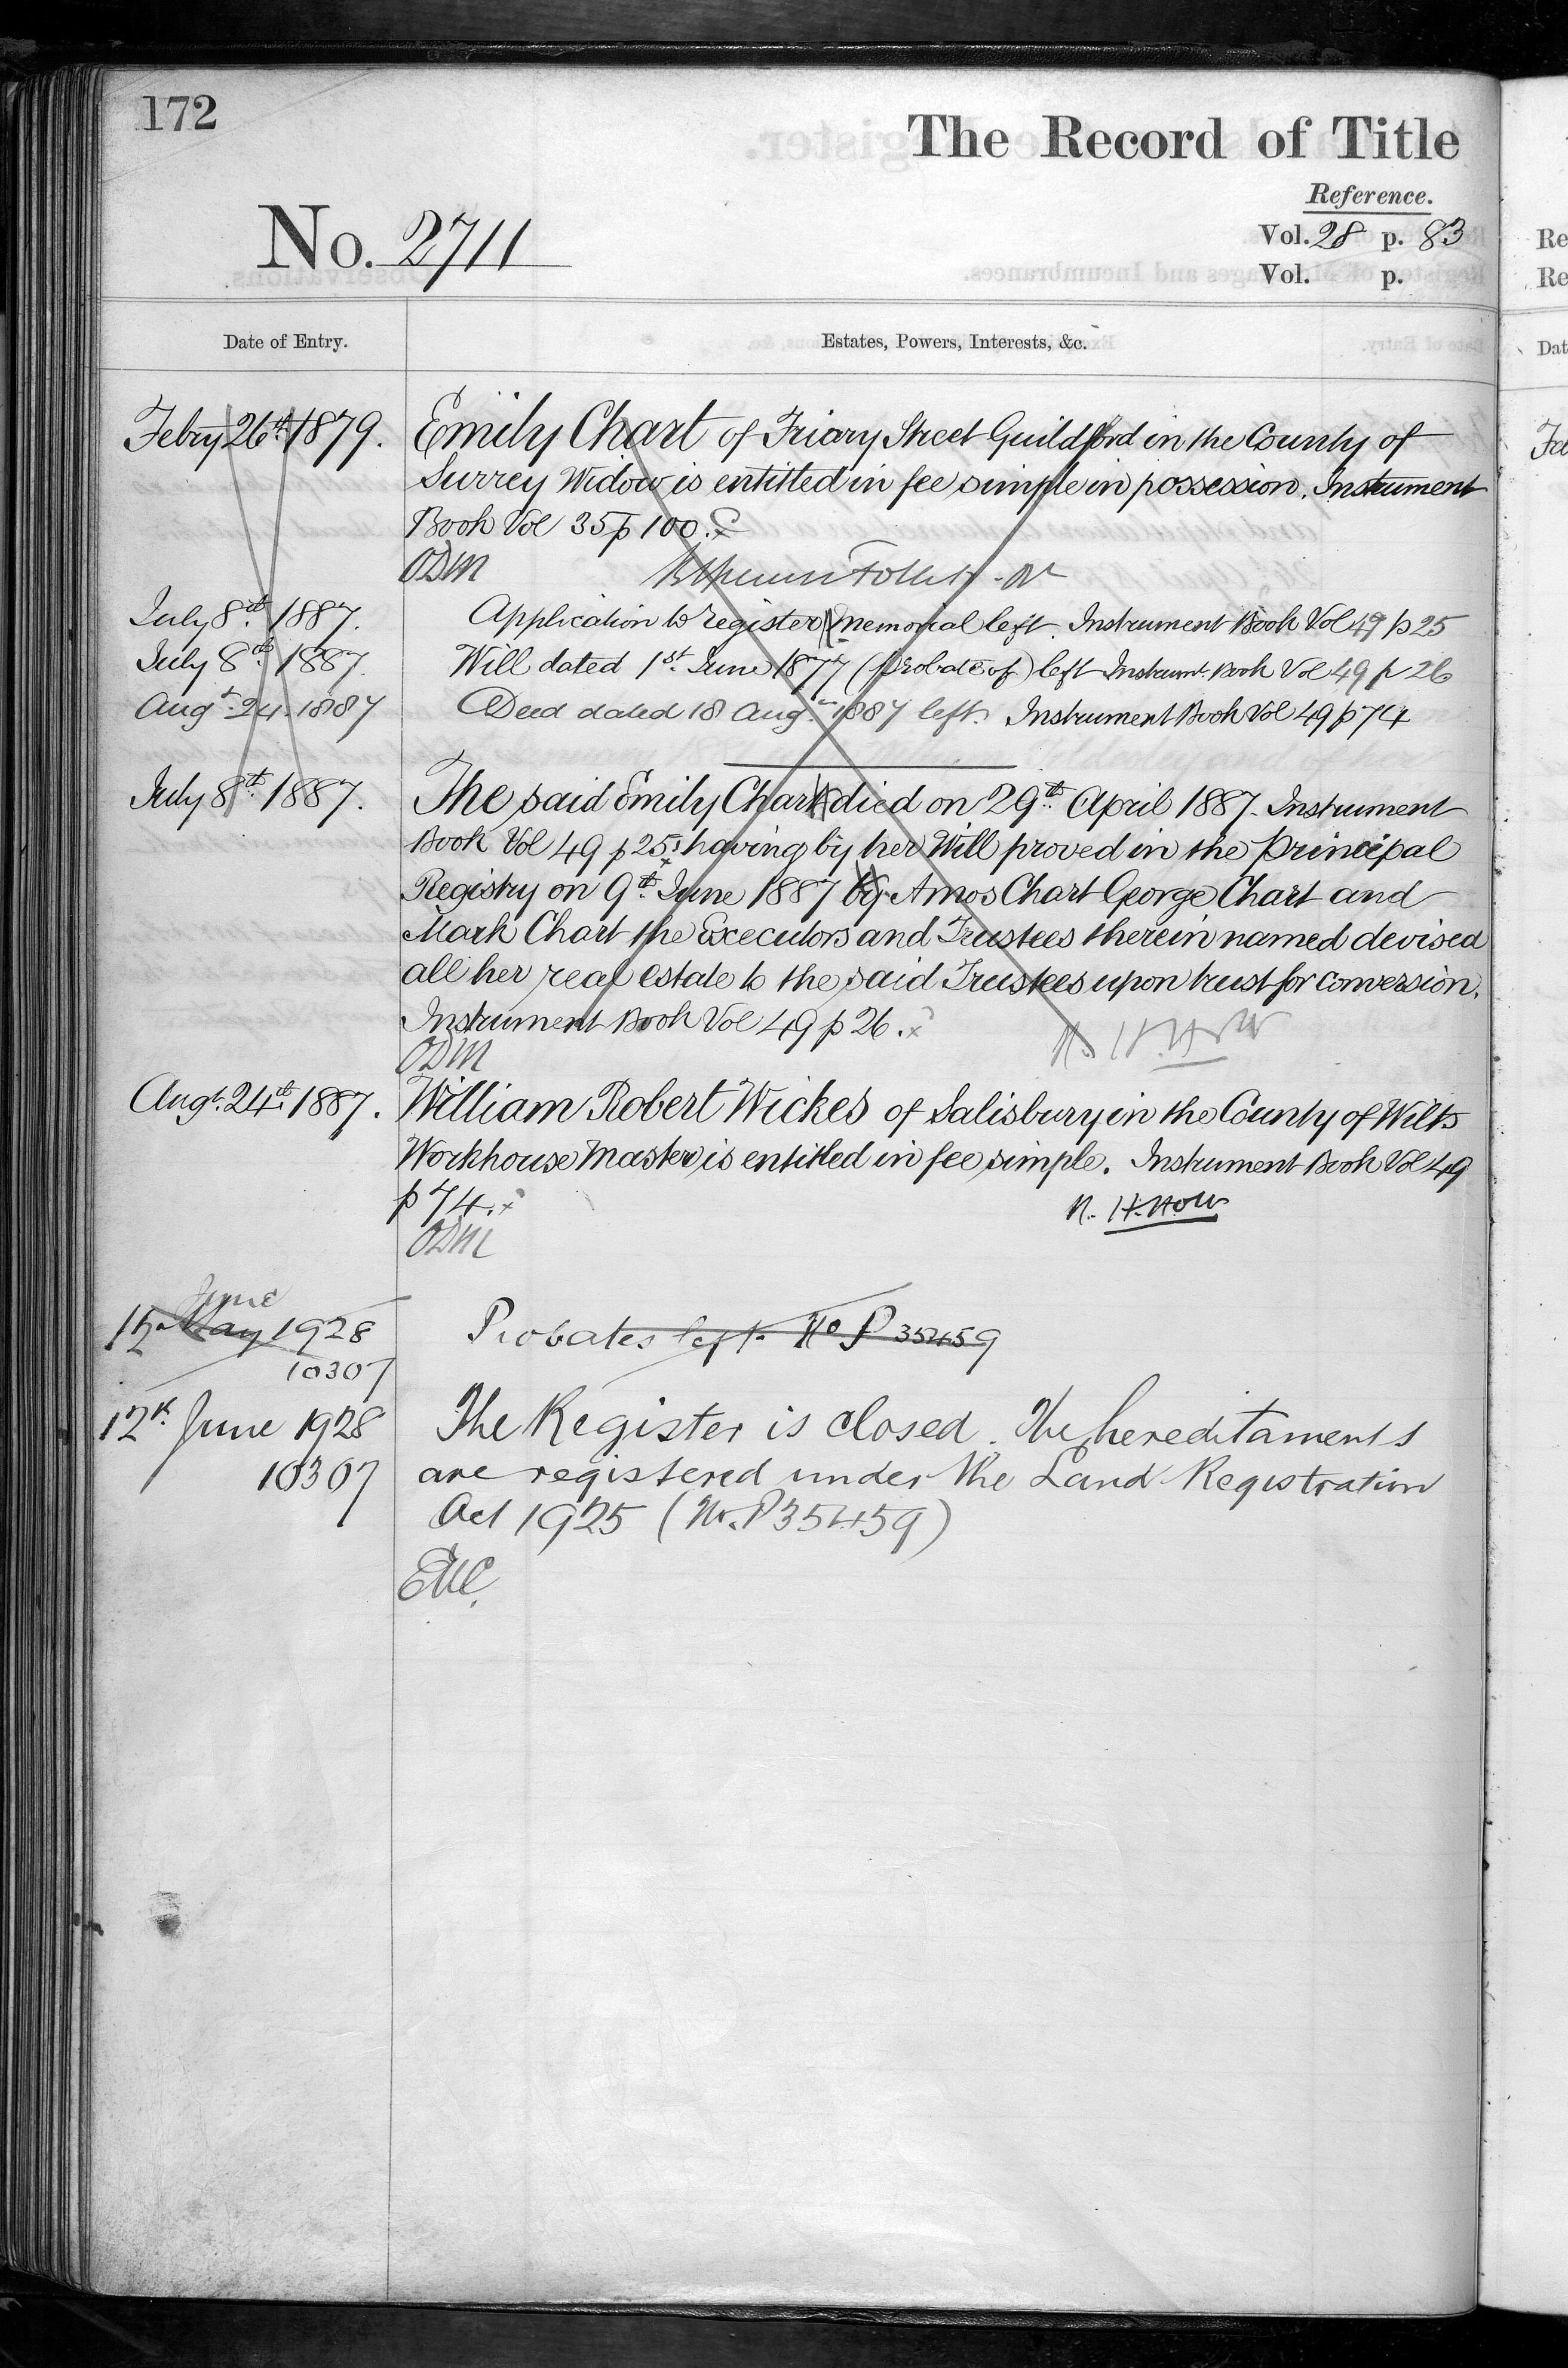 172
The Record of Title
Reference.
No. 2711
Vol. 28 p. 83
Vol. p.
Date of Entry.
Estates, Powers, Interests, &c.
Febry 26th 1879.
Emily Chart of Friary Street Guildford in the County of
Surrey Widow is entitled in fee simple in possession. Instrument
Book Vol 35 p 100.
ODM
July 8th 1887.
Application to register memorial left. Instrument Book Vol 49 p 25
July 8th 1887.
Will dated 1st June 1877 (probate of) left Instrumt. Book Vol 49 p 26
Augt. 24. 1887
Deed dated 18 Aug. 1887 left. Instrument Book Vol 49 p 74
July 8th 1887.
The said Emily Chart died on 29th April 1887. Instrument
Book Vol 49 p 25: having by her Will proved in the Principal
Registry on 9th June 1887 by Amos Chart George Chart and
Mark Chart the Executors and Trustees therein named devised
all her real estate to the said Trustees upon trust for conversion.
Instrument Book Vol 49 p 26.
ODM
Augt. 24th 1887.
William Robert Wickes of Salisbury in the County of Wilts
Workhouse Master is entitled in fee simple. Instrument Book Vol 49
p 74.
ODM
June
May 1928
10307
Probates left. No P 35459
12th June 1928
10307
The Register is closed. The hereditaments
are registered under the Land Registration
Act 1925 (No. P35459)
Re
Re
Dat